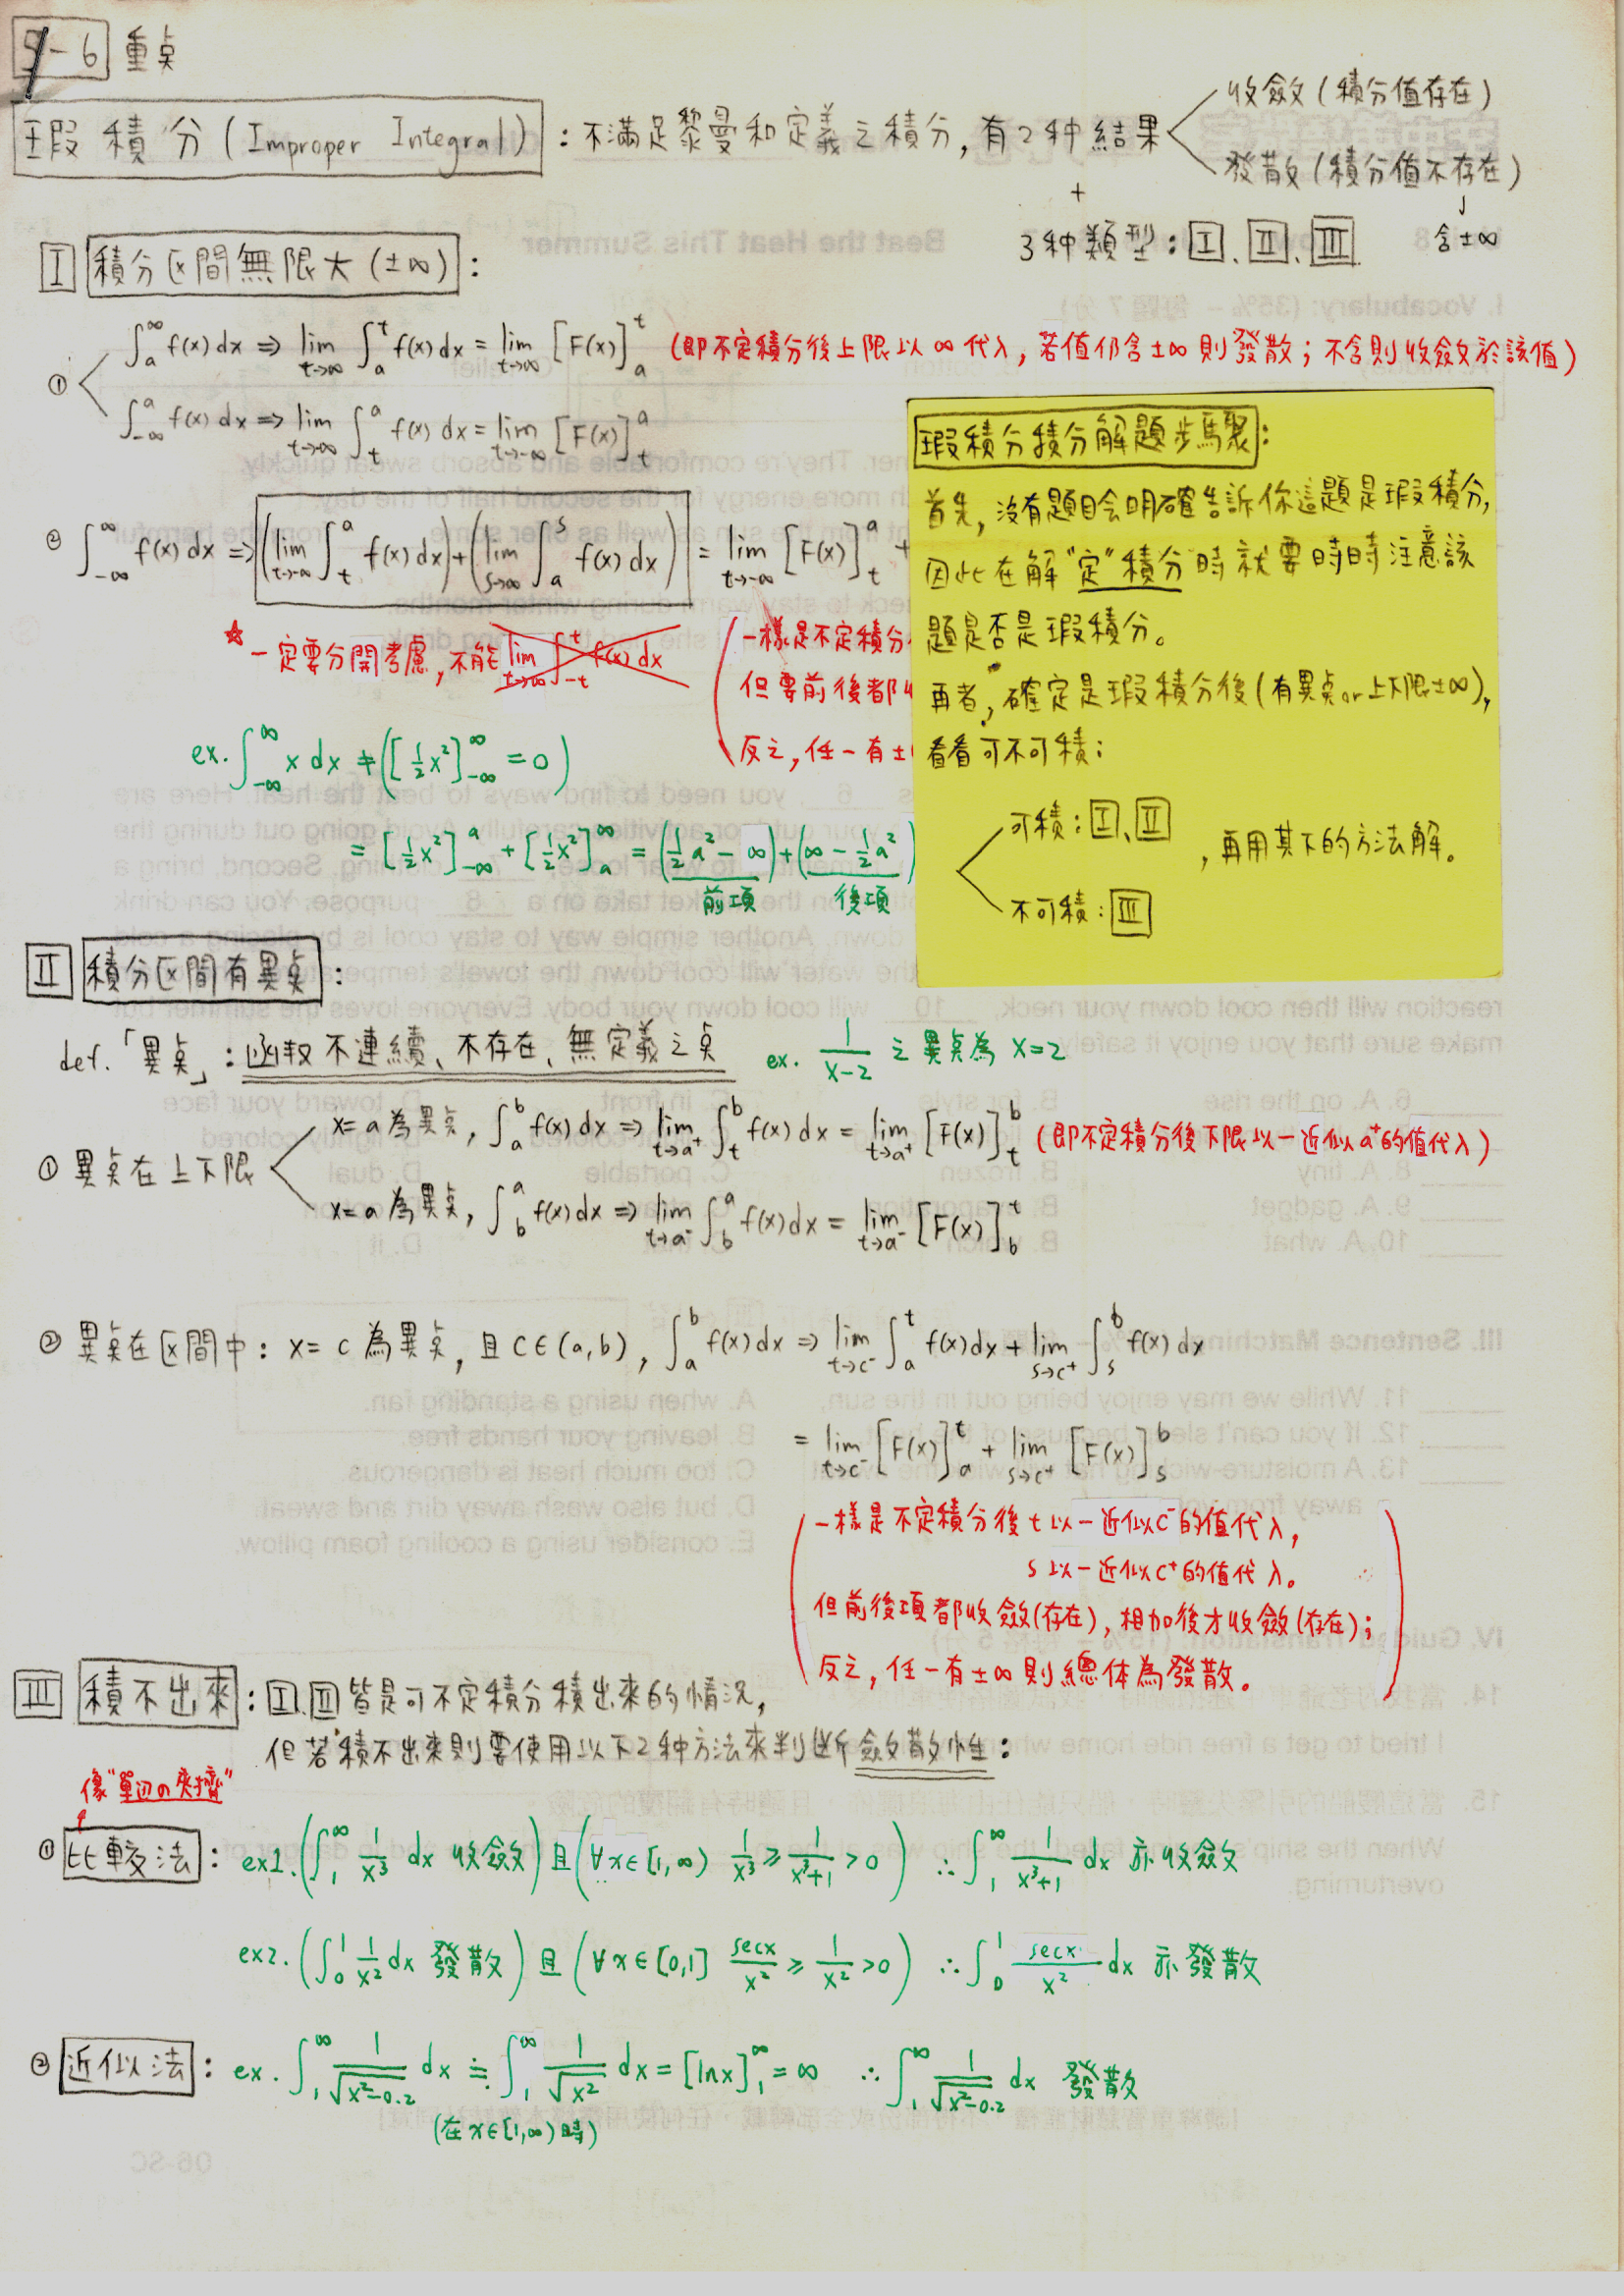 9-6 重点
瑕積分(Improper Integral):不滿足黎曼和定義之積分,有2种結果
收斂(積分值存在)
發散(積分值不存在)
↓
含±∞
+
3种類型:Ⅰ、Ⅱ、Ⅲ
Ⅰ 積分区間無限大(±∞):
① ∫_a^∞ f(x)dx ⇒ lim_{t→∞} ∫_a^t f(x)dx = lim_{t→∞} [F(x)]_a^t (即不定積分後上限以∞代入,若值仍含±∞則發散;不含則收斂於該值)
∫_{-∞}^a f(x)dx ⇒ lim_{t→-∞} ∫_t^a f(x)dx = lim_{t→-∞} [F(x)]_t^a
② ∫_{-∞}^∞ f(x)dx ⇒ (lim_{t→-∞} ∫_t^a f(x)dx)+(lim_{s→∞} ∫_a^s f(x)dx) = lim_{t→-∞} [F(x)]_t^a +
☆一定要分開考慮,不能 lim_{t→∞} ∫_{-t}^t f(x)dx
(一樣是不定積分
但要前後都
反之,任一有±
ex. ∫_{-∞}^∞ x dx ≠ ([½x²]_{-∞}^∞ = 0)
= [½x²]_{-∞}^a + [½x²]_a^∞ = (½a² - ∞)+(∞ - ½a²
前項 後項
瑕積分積分解題步驟:
首先,沒有題目会明確告訴你這題是瑕積分,
因此在解"定"積分時就要時時注意該
題是否是瑕積分。
再者,確定是瑕積分後(有異点or上下限±∞),
看看可不可積:
可積:Ⅰ、Ⅱ
,再用其下的方法解。
不可積:Ⅲ
Ⅱ 積分区間有異点:
def.「異点」:函數不連續、不存在、無定義之点 ex. 1/(x-2) 之異点為 x=2
① 異点在上下限
x=a為異点, ∫_a^b f(x)dx ⇒ lim_{t→a⁺} ∫_t^b f(x)dx = lim_{t→a⁺} [F(x)]_t^b (即不定積分後下限以一近似a⁺的值代入)
x=a為異点, ∫_b^a f(x)dx ⇒ lim_{t→a⁻} ∫_b^a f(x)dx = lim_{t→a⁻} [F(x)]_b^t
② 異点在区間中:x=c為異点,且c∈(a,b), ∫_a^b f(x)dx ⇒ lim_{t→c⁻} ∫_a^t f(x)dx + lim_{s→c⁺} ∫_s^b f(x)dx
= lim_{t→c⁻} [F(x)]_a^t + lim_{s→c⁺} [F(x)]_s^b
(一樣是不定積分後t以一近似c⁻的值代入,
s以一近似c⁺的值代入。
但前後項都收斂(存在),相加後才收斂(存在);
反之,任一有±∞則總体為發散。)
Ⅲ 積不出來:Ⅰ.Ⅱ皆是可不定積分積出來的情況,
但若積不出來則要使用以下2种方法來判断斂散性:
像"單边の夾擠"
① 比較法:ex1.(∫_1^∞ 1/x³ dx 收斂)且(∀x∈[1,∞) 1/x³ ≥ 1/(x³+1) > 0) ∴∫_1^∞ 1/(x³+1) dx 亦收斂
ex2.(∫_0^1 1/x² dx 發散)且(∀x∈[0,1] secx/x² ≥ 1/x² > 0) ∴∫_0^1 secx/x² dx 亦發散
② 近似法:ex. ∫_1^∞ 1/√(x²-0.2) dx ≒ ∫_1^∞ 1/√x² dx = [lnx]_1^∞ = ∞ ∴∫_1^∞ 1/√(x²-0.2) dx 發散
(在x∈[1,∞)時)